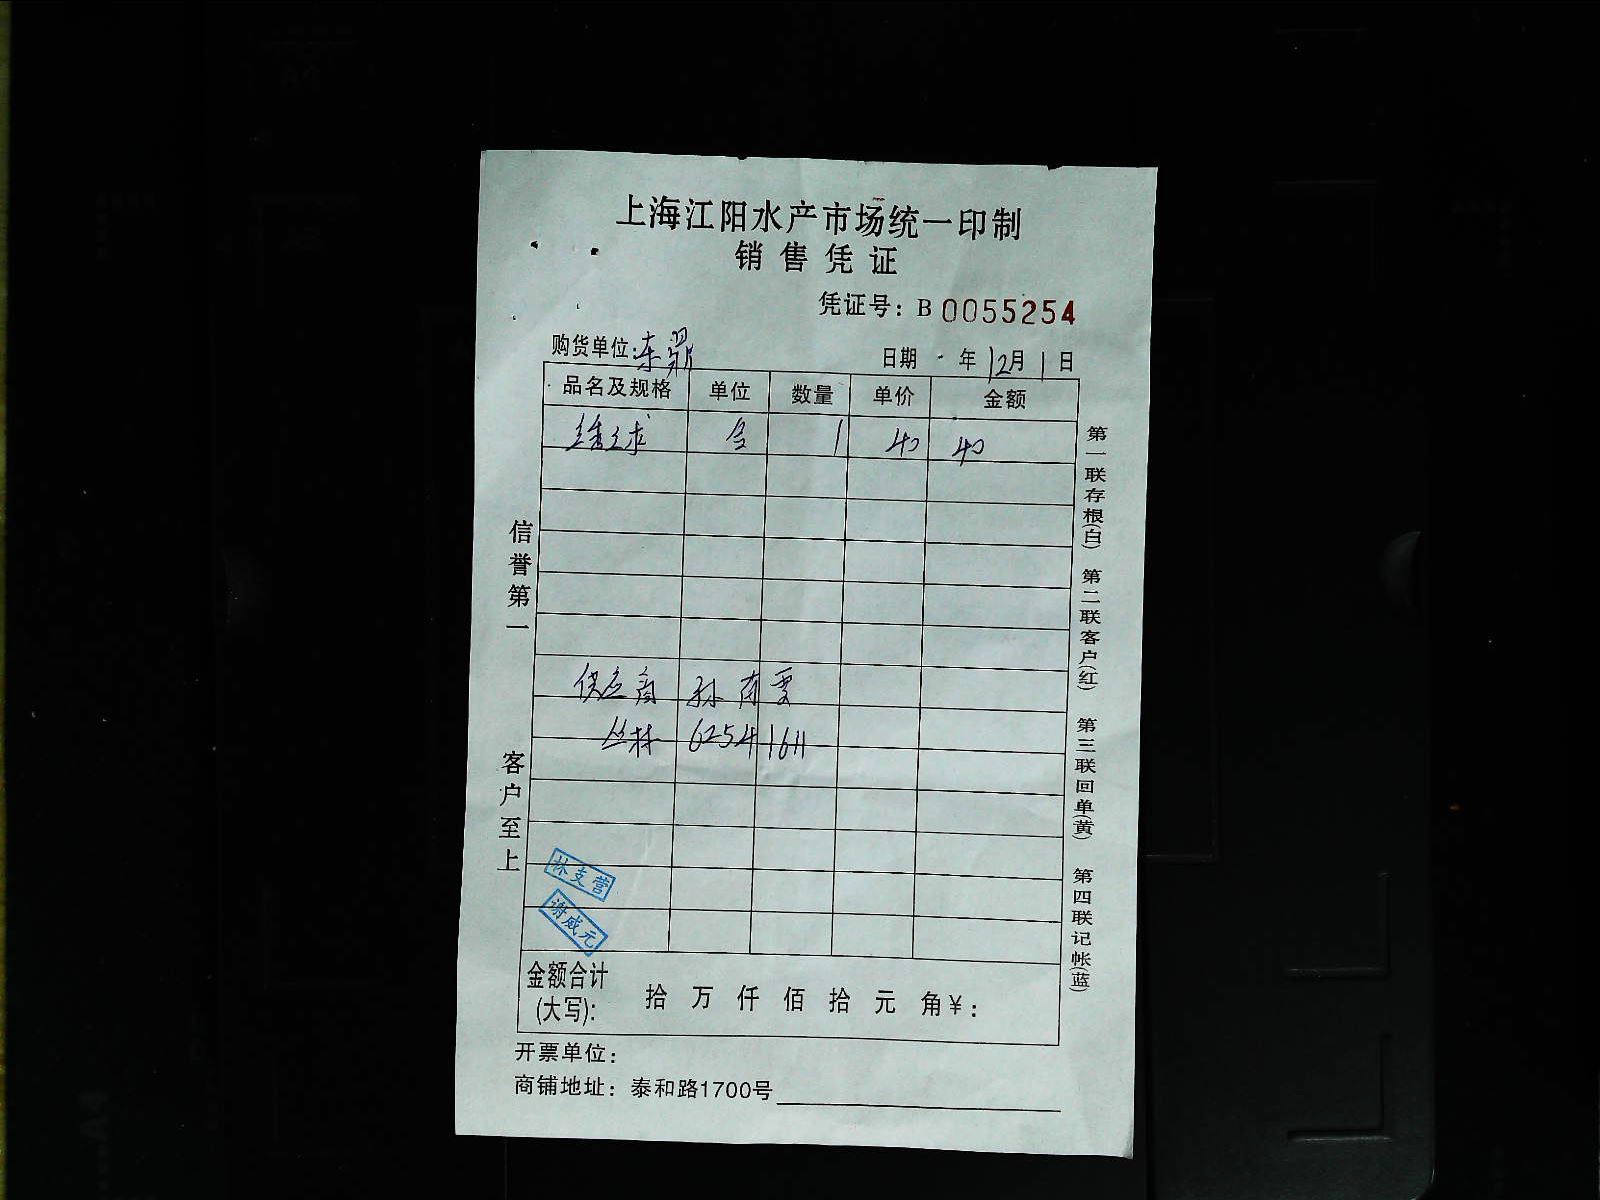 上海江阳水产市场统一印制
销售凭证
凭证号：B 0055254
购货单位：东鼎 日期 年 12月 1 日
品名及规格 单位 数量 单价 金额
绣球 1 40 40
供应商 孙南雯
丛林 62541611
林支营
谢咸元
金额合计(大写)： 拾 万 仟 佰 拾 元 角 ￥：
开票单位：
商铺地址：泰和路1700号
信誉第一
客户至上
第一联存根(白) 第二联客户(红) 第三联回单(黄) 第四联记帐(蓝)